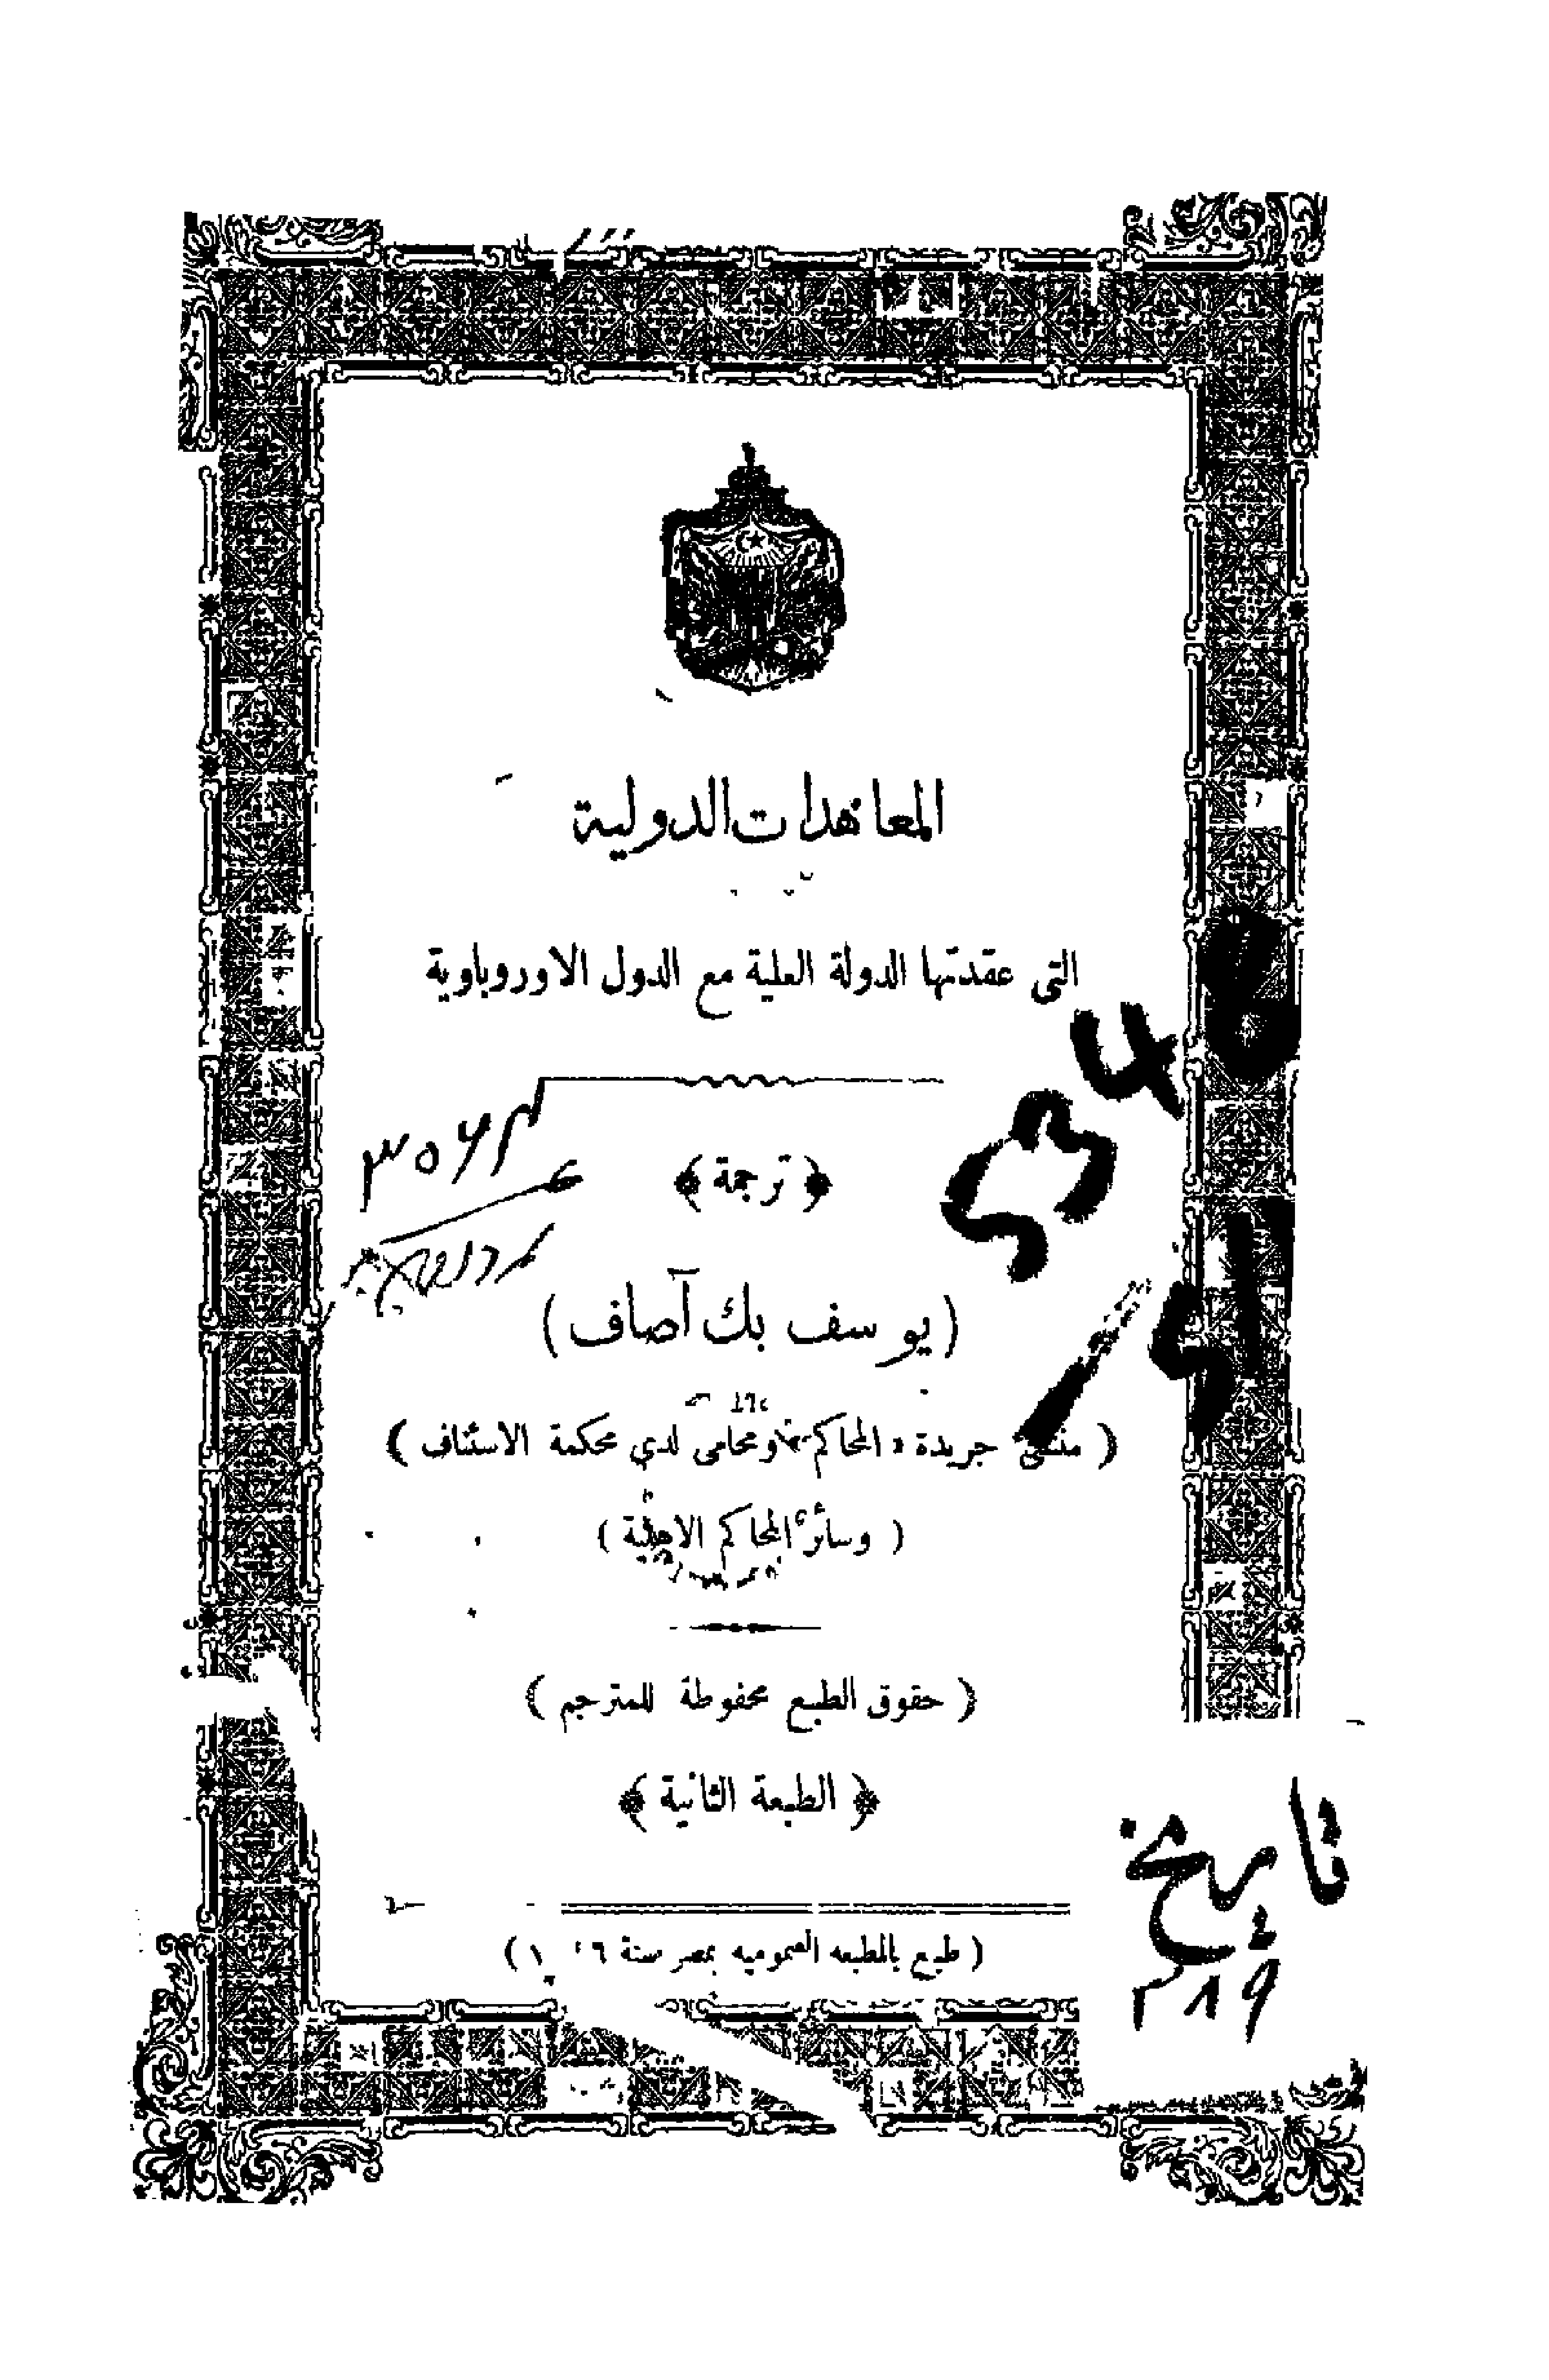 المعاهدات الدولية
التى عقدتها الدولة العلية مع الدول الاوروباوية
﴿ ترجمة ﴾
(يوسف بك آصاف)
( منشئ جريدة « المحاكم » ومحامى لدي محكمة الاستئناف )
( وسائر المحاكم الاهلية )
( حقوق الطبع محفوظة للمترجم )
﴿ الطبعة الثانية ﴾
( طبع بالمطبعه العموميه بمصر سنة
تاريخ